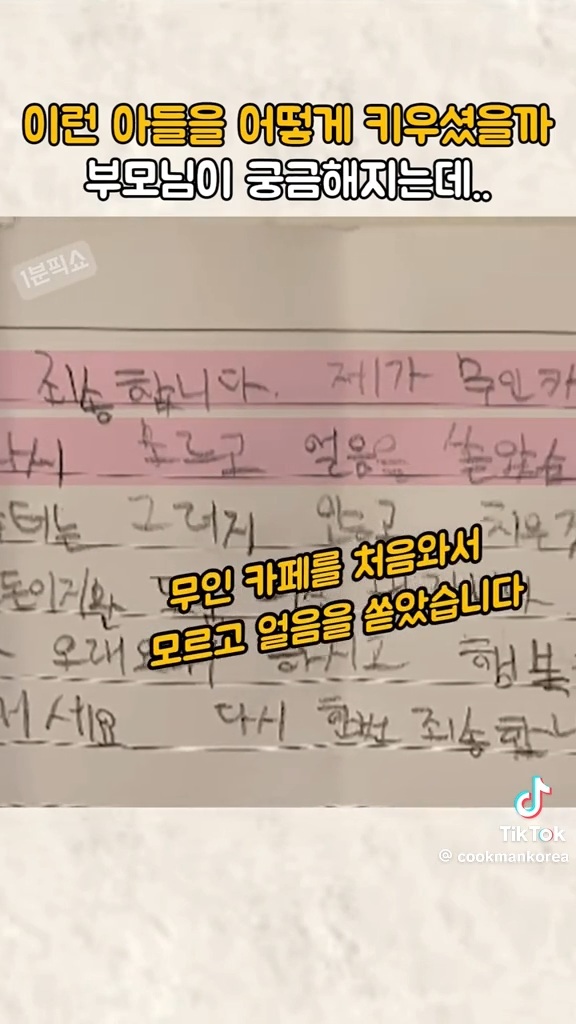 이런 아들을 어떻게 키우셨을까
부모님이 궁금해지는데..
1분픽쇼
죄송합니다. 제가 무인카
와서 모르고 얼음을 쏟았습
터는 그러지 않고 치우
돈이지만
무인 카페를 처음와서
모르고 얼음을 쏟았습니다
오래 하시고 행복
하세요 다시 한번 죄송합니
TikTok
@cookmankorea